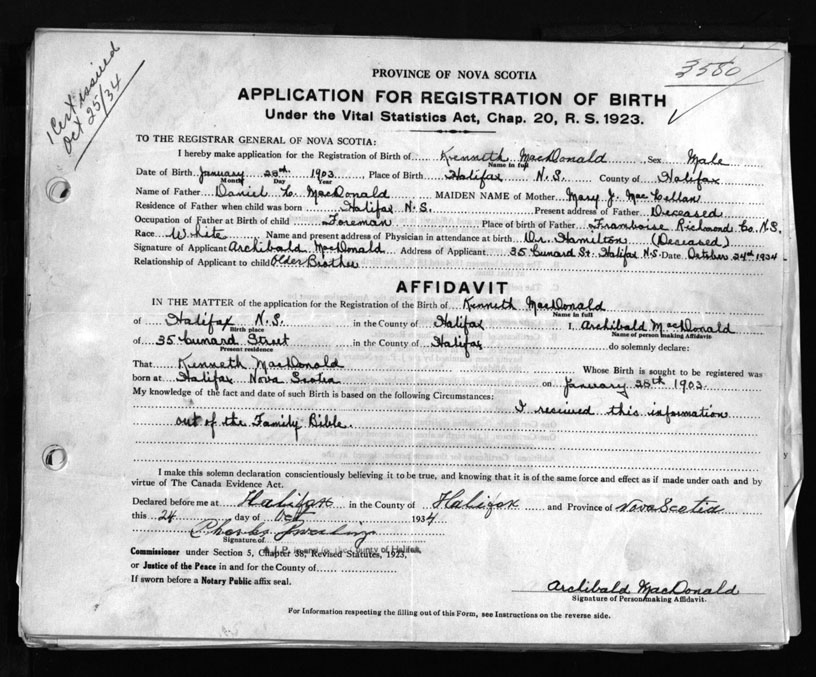 1 Cert issued
Oct 25/34
3580
PROVINCE OF NOVA SCOTIA
APPLICATION FOR REGISTRATION OF BIRTH
Under the Vital Statistics Act, Chap. 20, R. S. 1923.
TO THE REGISTRAR GENERAL OF NOVA SCOTIA:
I hereby make application for the Registration of Birth of Kenneth MacDonald Sex Male
Name in full
Date of Birth January 28th 1903 Place of Birth Halifax N.S. County of Halifax
Month Day Year
Name of Father Daniel L. MacDonald MAIDEN NAME of Mother Mary J. MacLellan
Residence of Father when child was born Halifax N.S. Present address of Father Deceased
Occupation of Father at Birth of child Foreman Place of birth of Father Framboise Richmond Co. N.S.
Race White Name and present address of Physician in attendance at birth Dr. Hamilton (Deceased)
Signature of Applicant Archibald MacDonald Address of Applicant 35 Cunard St. Halifax N.S. Date October 24th 1934
Relationship of Applicant to child Older Brother
AFFIDAVIT
IN THE MATTER of the application for the Registration of the Birth of Kenneth MacDonald
Name in full
of Halifax N.S. in the County of Halifax I, Archibald MacDonald
Birth place Name of person making Affidavit
of 35 Cunard Street in the County of Halifax do solemnly declare:
Present residence
That Kenneth MacDonald Whose Birth is sought to be registered was
born at Halifax Nova Scotia on January 28th 1903.
My knowledge of the fact and date of such Birth is based on the following Circumstances:
I received this information
out of the Family Bible.
I make this solemn declaration conscientiously believing it to be true, and knowing that it is of the same force and effect as if made under oath and by
virtue of The Canada Evidence Act.
Declared before me at Halifax in the County of Halifax and Province of Nova Scotia
this 24 day of Oct 1934
Charles
Signature of
A J. P. in and for the County of Halifax.
Commissioner under Section 5, Chapter 38, Revised Statutes, 1923,
or Justice of the Peace in and for the County of
If sworn before a Notary Public affix seal.
Archibald MacDonald
Signature of Person making Affidavit.
For Information respecting the filling out of this Form, see Instructions on the reverse side.